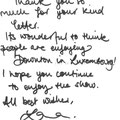 Thank you so
much for your kind
letter.
It's wonderful to think
people are enjoying
Downton in Luxembourg!
I hope you continue
to enjoy the show.
All best wishes,